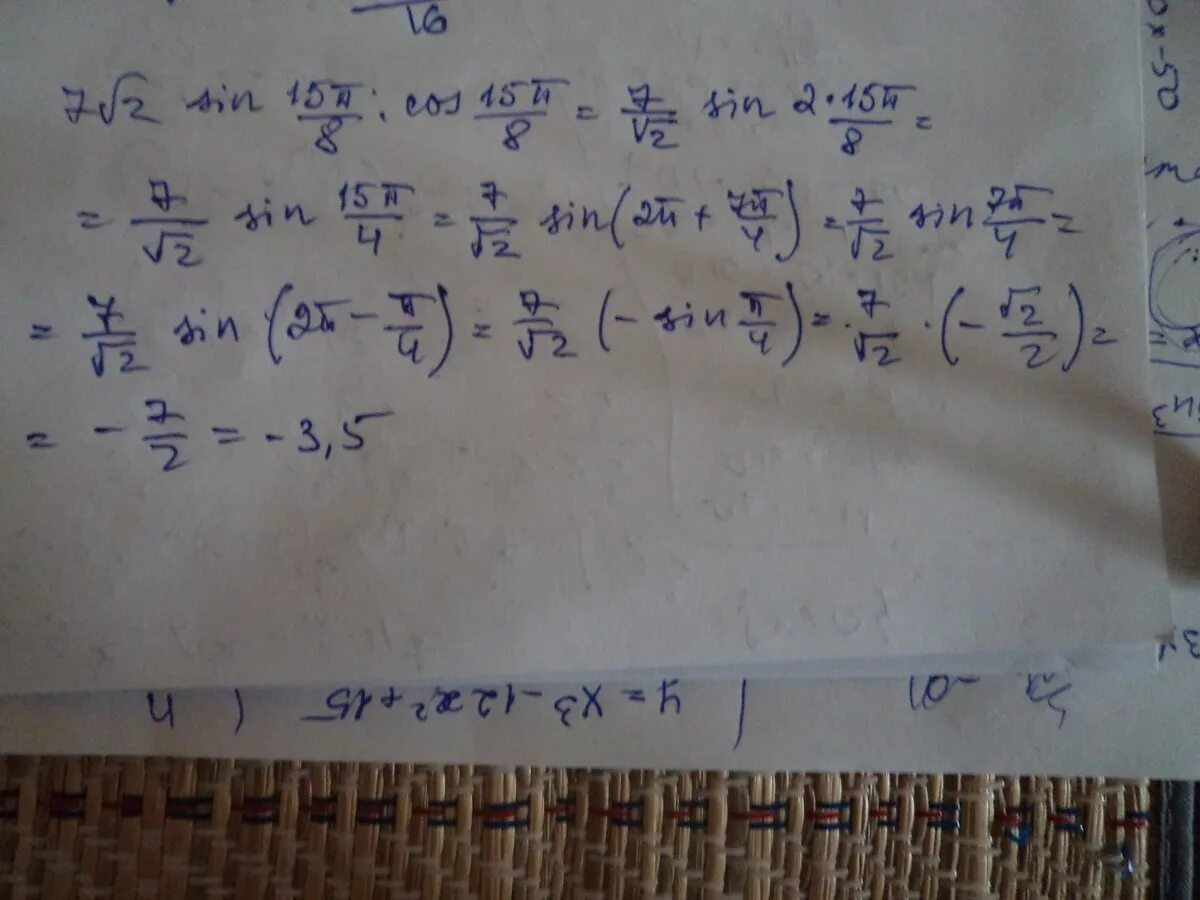 16
7√2 sin 15π/8 · cos 15π/8 = 7/√2 sin 2·15π/8 =
= 7/√2 sin 15π/4 = 7/√2 sin(2π + 7π/4) = 7/√2 sin 7π/4 =
= 7/√2 sin (2π - π/4) = 7/√2 (- sin π/4) = 7/√2 · (- √2/2) =
= - 7/2 = - 3,5
y = x3 - 12x² + 15